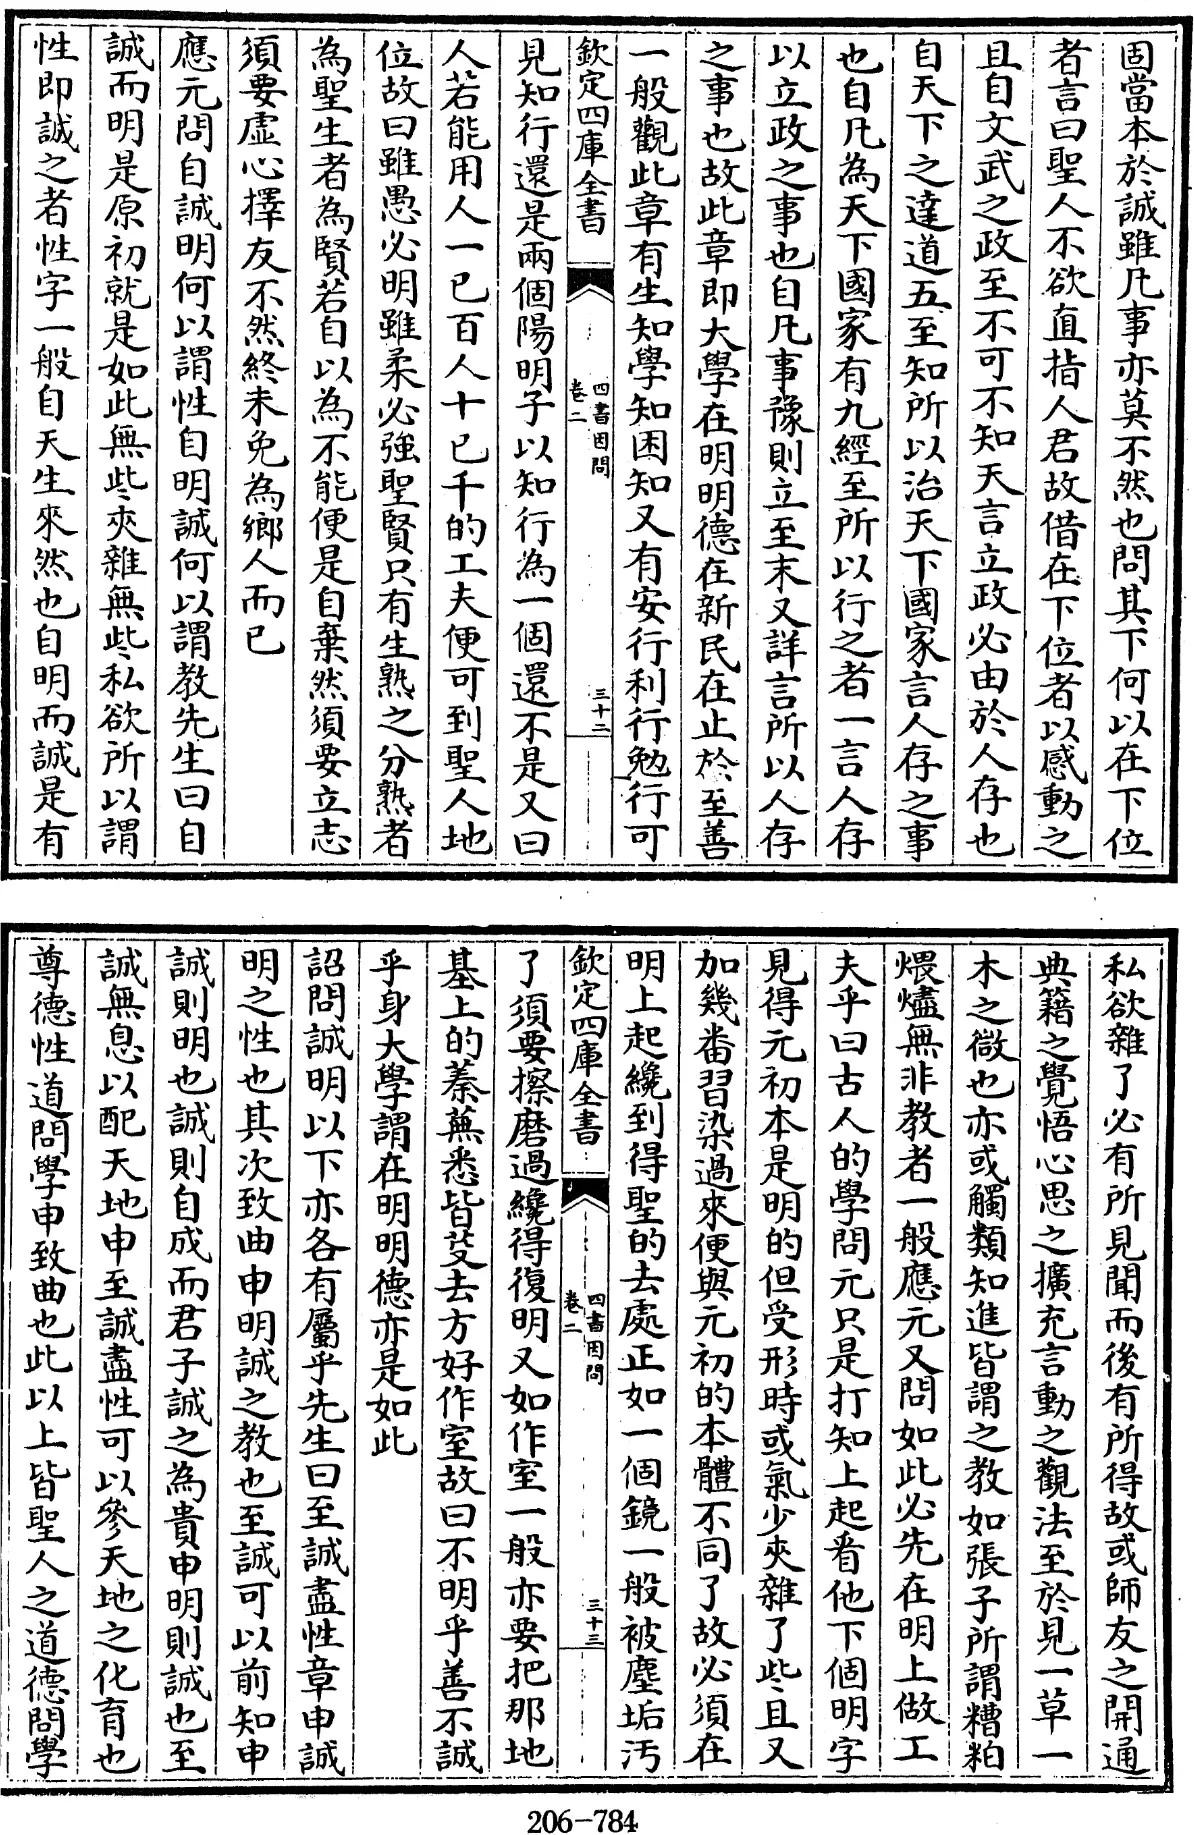 固當本於誠雖凡事亦莫不然也問其下何以在下位
者言曰聖人不欲直指人君故借在下位者以感動之
且自文武之政至不可不知天言立政必由於人存也
自天下之達道五至知所以治天下國家言人存之事
也自凡為天下國家有九經至所以行之者一言人存
以立政之事也自凡事豫則立至末又詳言所以人存
之事也故此章即大學在明明德在新民在止於至善
一般觀此章有生知學知困知又有安行利行勉行可
欽定四庫全書
四書因問
卷二
三十二
見知行還是兩個陽明子以知行為一個還不是又曰
人若能用人一已百人十已千的工夫便可到聖人地
位故曰雖愚必明雖柔必強聖賢只有生熟之分熟者
為聖生者為賢若自以為不能便是自棄然須要立志
須要虛心擇友不然終未免為鄉人而已
應元問自誠明何以謂性自明誠何以謂教先生曰自
誠而明是原初就是如此無些夾雜無些私欲所以謂
性即誠之者性字一般自天生來然也自明而誠是有
私欲雜了必有所見聞而後有所得故或師友之開通
典籍之覺悟心思之擴充言動之觀法至於見一草一
木之微也亦或觸類知進皆謂之教如張子所謂糟粕
煨燼無非教者一般應元又問如此必先在明上做工
夫乎曰古人的學問元只是打知上起看他下個明字
見得元初本是明的但受形時或氣少夾雜了些且又
加幾番習染過來便與元初的本體不同了故必須在
明上起纔到得聖的去處正如一個鏡一般被塵垢汚
欽定四庫全書
四書因問
卷二
三十三
了須要擦磨過纔得復明又如作室一般亦要把那地
基上的蓁蕪悉皆芟去方好作室故曰不明乎善不誠
乎身大學謂在明明德亦是如此
詔問誠明以下亦各有屬乎先生曰至誠盡性章申誠
明之性也其次致曲申明誠之教也至誠可以前知申
誠則明也誠則自成而君子誠之為貴申明則誠也至
誠無息以配天地申至誠盡性可以參天地之化育也
尊德性道問學申致曲也此以上皆聖人之道德問學
206-784